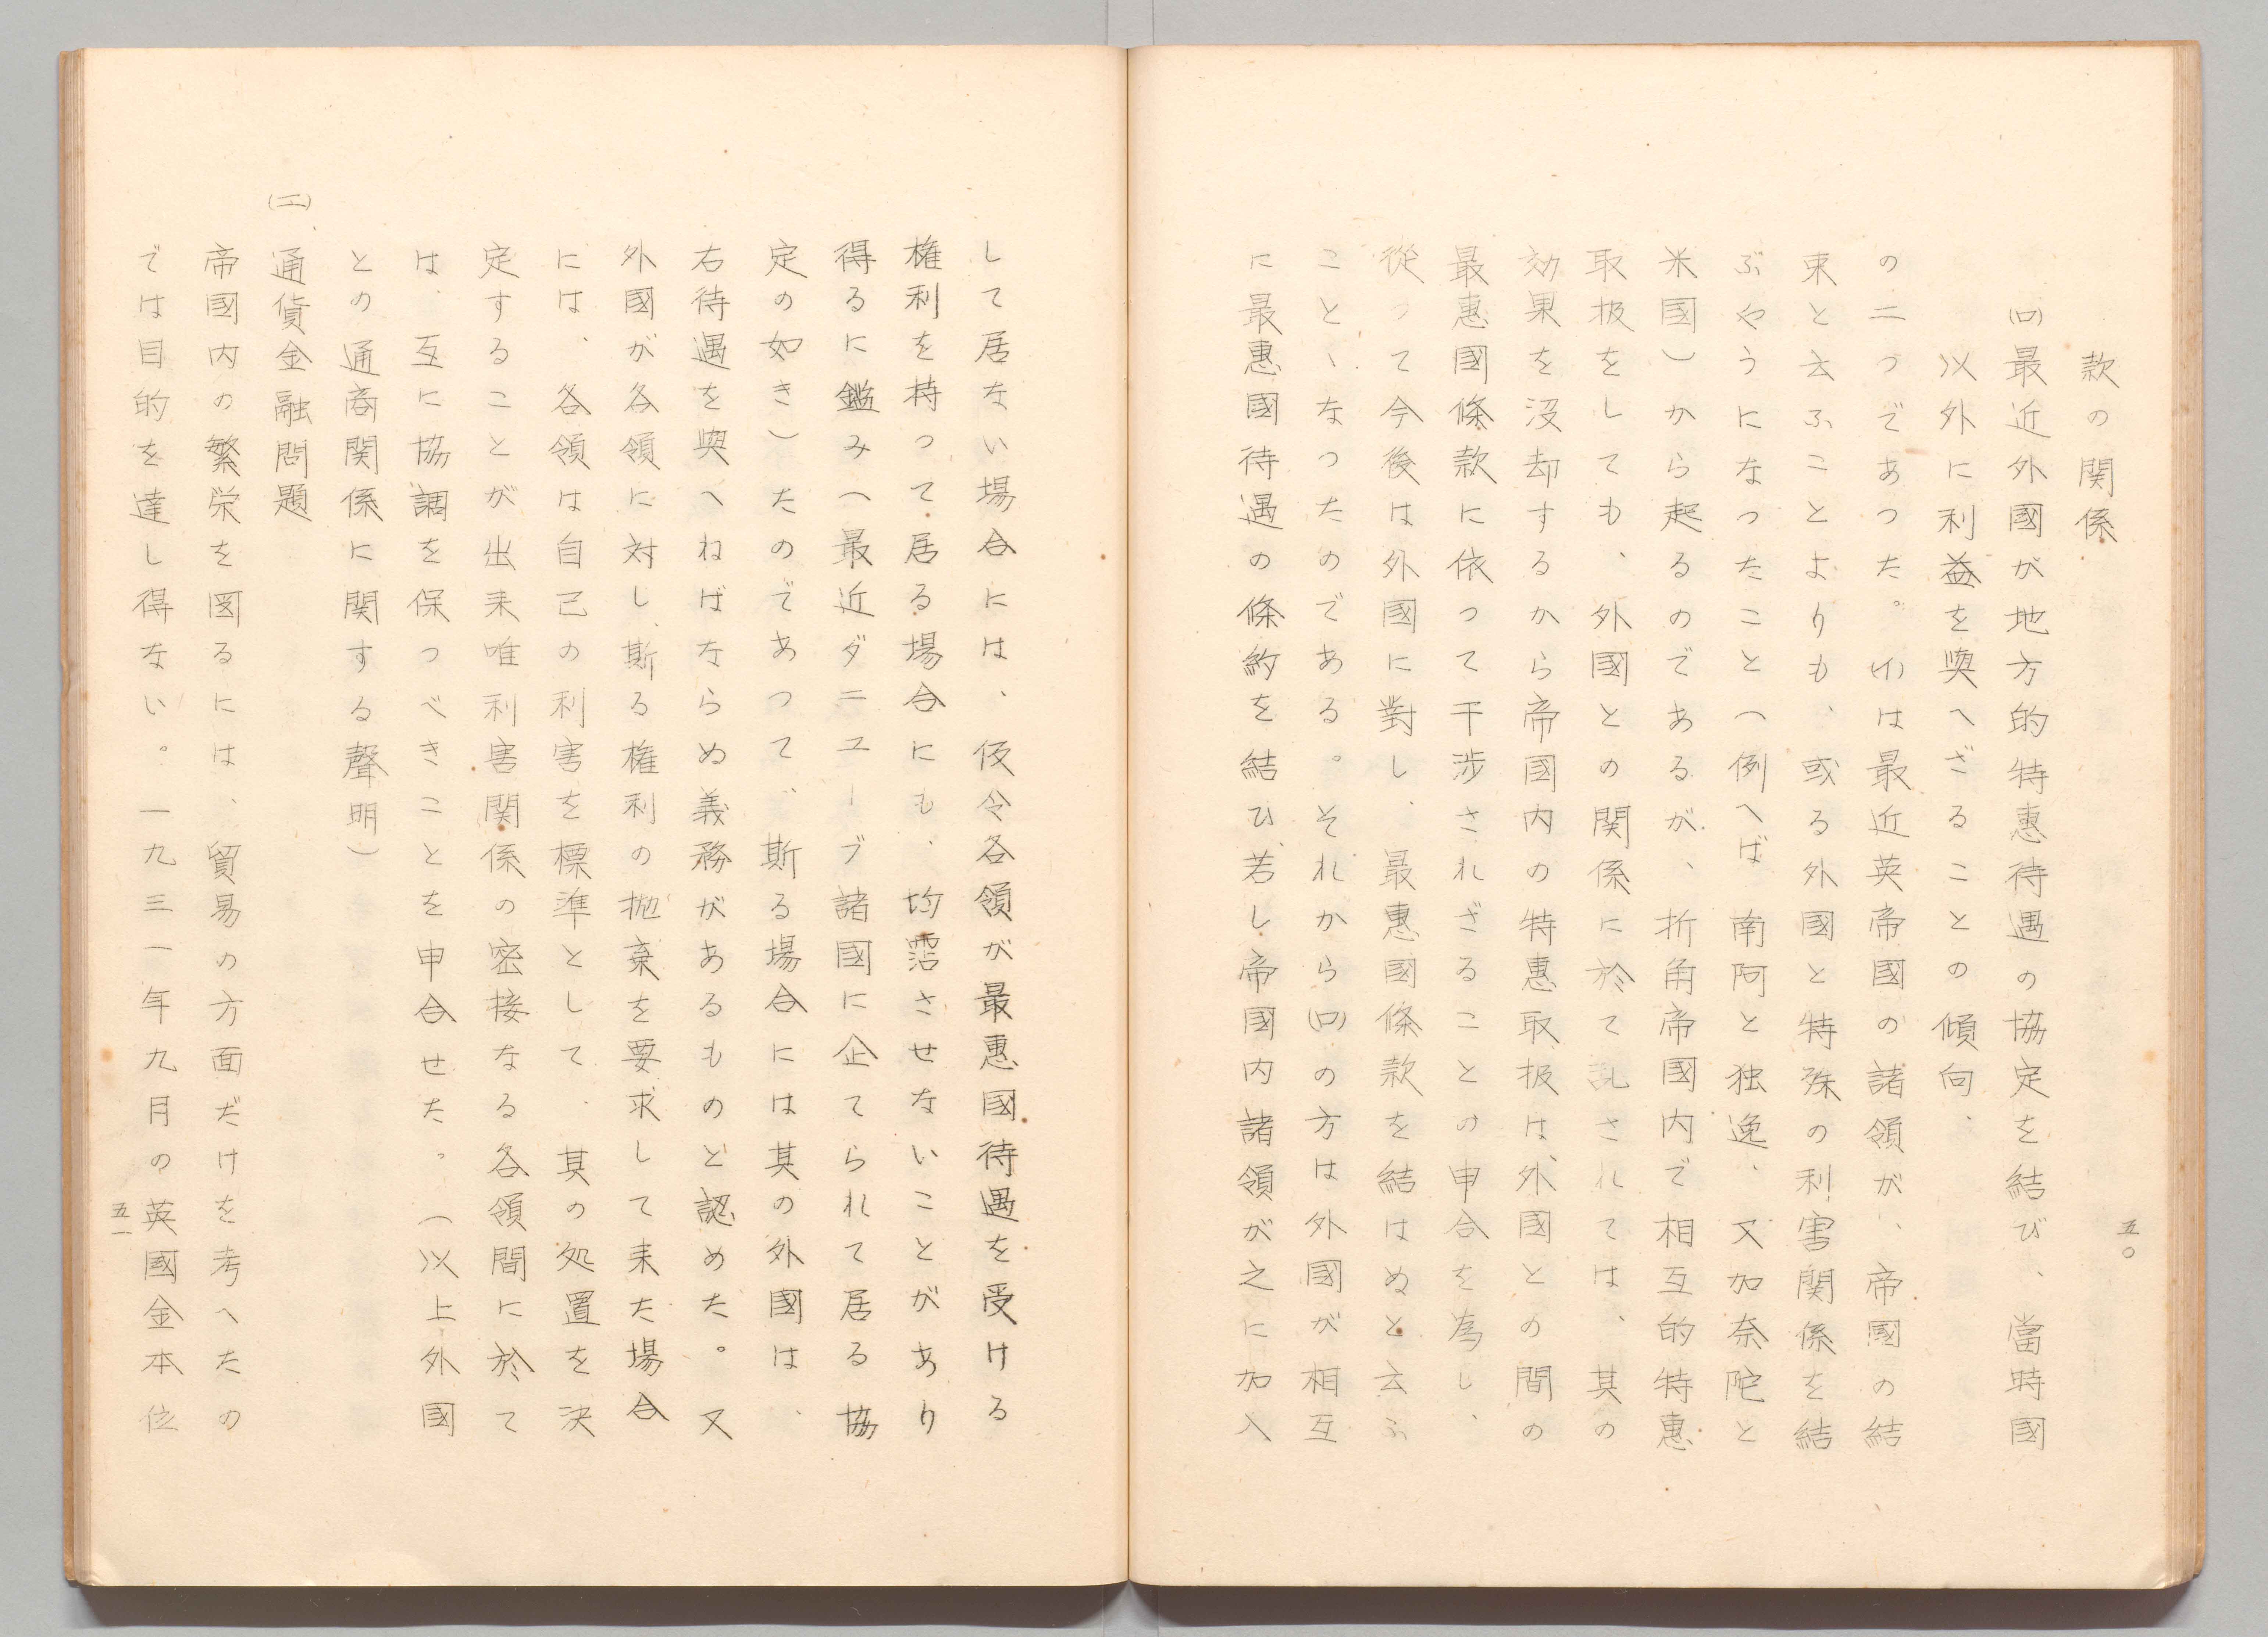 款の関係
(ロ)最近外國が地方的特惠待遇の協定を結び、當時國
以外に利益を與へざることの傾向、
の二つであつた。(イ)は最近英帝國の諸領が、帝國の結
束と云ふことよりも、或る外國と特殊の利害関係を結
ぶやうになつたこと(例へば南阿と独逸、又加奈陀と
米國)から起るのであるが、折角帝國内で相互的特惠
取扱をしても、外國との関係に於て乱されては、其の
効果を沒却するから帝國内の特惠取扱は、外國との間の
最惠國條款に依つて干渉されざることの申合を為し、
從つて今後は外國に對し、最惠國條款を結はぬと云ふ
ことゝなつたのである。それから(ロ)の方は外國が相互
に最惠國待遇の條約を結ひ、若し帝國内諸領が之に加入
五〇
して居ない場合には、仮令各領が最惠國待遇を受ける
権利を持つて居る場合にも、均霑させないことがあり
得るに鑑み(最近ダニユーブ諸國に企てられて居る協
定の如き)たのであつて、斯る場合には其の外國は、
右待遇を與へねばならぬ義務があるものと認めた。又
外國が各領に対し、斯る権利の抛棄を要求して来た場合
には、各領は自己の利害を標準として、其の処置を決
定することが出来唯利害関係の密接なる各領間に於て
は、互に協調を保つべきことを申合せた。(以上外國
との通商関係に関する聲明)
(二)、通貨金融問題
帝國内の繁栄を図るには、貿易の方面だけを考へたの
では目的を達し得ない。一九三一年九月の英國金本位
五一